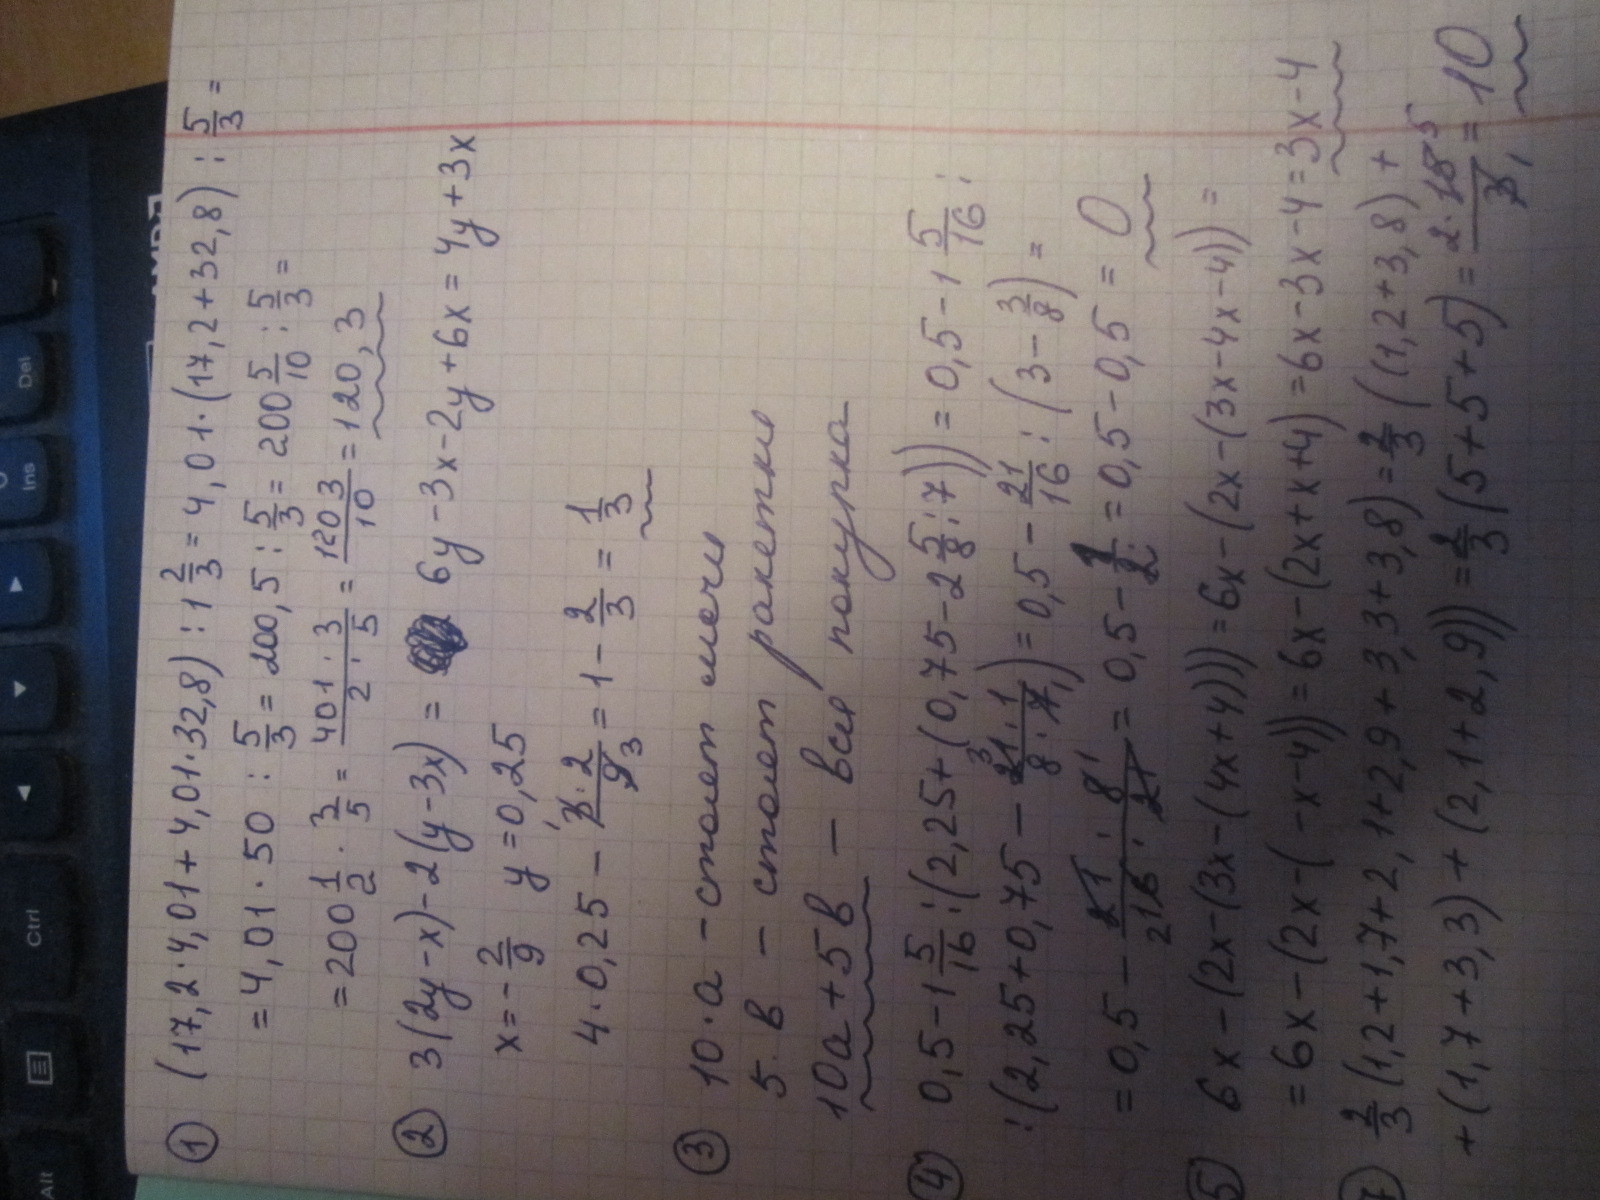 ① (17,2·4,01+4,01·32,8):1 2/3=4,01·(17,2+32,8):5/3=
=4,01·50:5/3=200,5:5/3=200 5/10:5/3=
=200 1/2·3/5=401·3/2·5=1203/10=120,3
② 3(2y-x)-2(y-3x)= 6y-3x-2y+6x=4y+3x
x=-2/9 y=0,25
4·0,25-3·2/9=1-2/3=1/3
③ 10·a-стоят мечи
5·b-стоят ракетки
10a+5b-вся покупка
④ 0,5-1 5/16:(2,25+(0,75-2 5/8:7))=0,5-1 5/16:
:(2,25+0,75-21·1/8·7)=0,5-21/16:(3-3/8)=
=0,5-21·8/16·21=0,5-1/2=0,5-0,5=0
⑤ 6x-(2x-(3x-(4x+4)))=6x-(2x-(3x-4x-4))=
=6x-(2x-(-x-4))=6x-(2x+x+4)=6x-3x-4=3x-4
7) 2/3(1,2+1,7+2,1+2,9+3,3+3,8)=2/3((1,2+3,8)+
+(1,7+3,3)+(2,1+2,9))=2/3(5+5+5)=2·15/3=10
Alt
Ctrl
Ins
Del